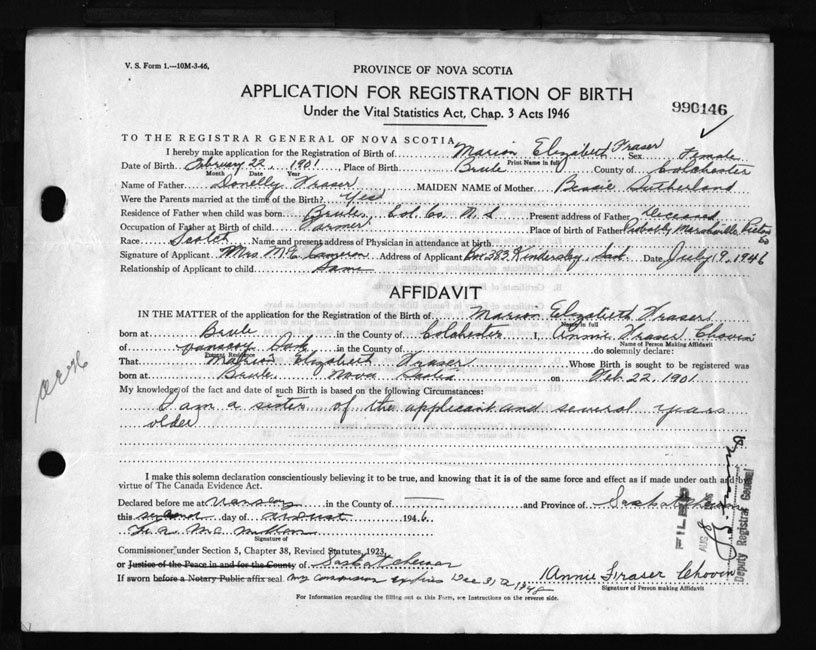 V. S. Form 1.—10M-3-46.
PROVINCE OF NOVA SCOTIA
APPLICATION FOR REGISTRATION OF BIRTH
Under the Vital Statistics Act, Chap. 3 Acts 1946
990146
TO THE REGISTRAR GENERAL OF NOVA SCOTIA
I hereby make application for the Registration of Birth of Marion Elizabeth Fraser Sex Female
Print Name in full
Date of Birth February 22, 1901 Place of Birth Brule County of Colchester
Month Day Year
Name of Father Donelly Fraser MAIDEN NAME of Mother Bessie Sutherland
Were the Parents married at the time of the Birth? Yes
Residence of Father when child was born Brule, Col. Co. N. S. Present address of Father Deceased
Occupation of Father at Birth of child Farmer Place of birth of Father Probably Marshville Pictou Co
Race Scotch Name and present address of Physician in attendance at birth
Signature of Applicant Mrs M. E. Cameron Address of Applicant Box 383 Kindersley, Sask Date July 19, 1946
Relationship of Applicant to child Same
AFFIDAVIT
IN THE MATTER of the application for the Registration of the Birth of Marion Elizabeth Fraser
Name in full
born at Brule in the County of Colchester I, Annie Fraser Chovin
Name of Person Making Affidavit
of Vanscoy Sask in the County of do solemnly declare:
Present Residence
That Marion Elizabeth Fraser Whose Birth is sought to be registered was
born at Brule Nova Scotia on Feb. 22 1901
My knowledge of the fact and date of such Birth is based on the following Circumstances:
I am a sister of the applicant and several years
older
I make this solemn declaration conscientiously believing it to be true, and knowing that it is of the same force and effect as if made under oath and by
virtue of The Canada Evidence Act.
Declared before me at Vanscoy in the County of — and Province of Saskatchewan
this second day of August 1946
McMillan
Signature of
Commissioner under Section 5, Chapter 38, Revised Statutes, 1923,
or Justice of the Peace in and for the County of Saskatchewan
If sworn before a Notary Public affix seal My commission expires Dec 31, 1948
Annie Fraser Chovin
Signature of Person making Affidavit
For Information regarding the filling out of this Form, see Instructions on the reverse side.
FILED
AUG
Deputy Registrar General